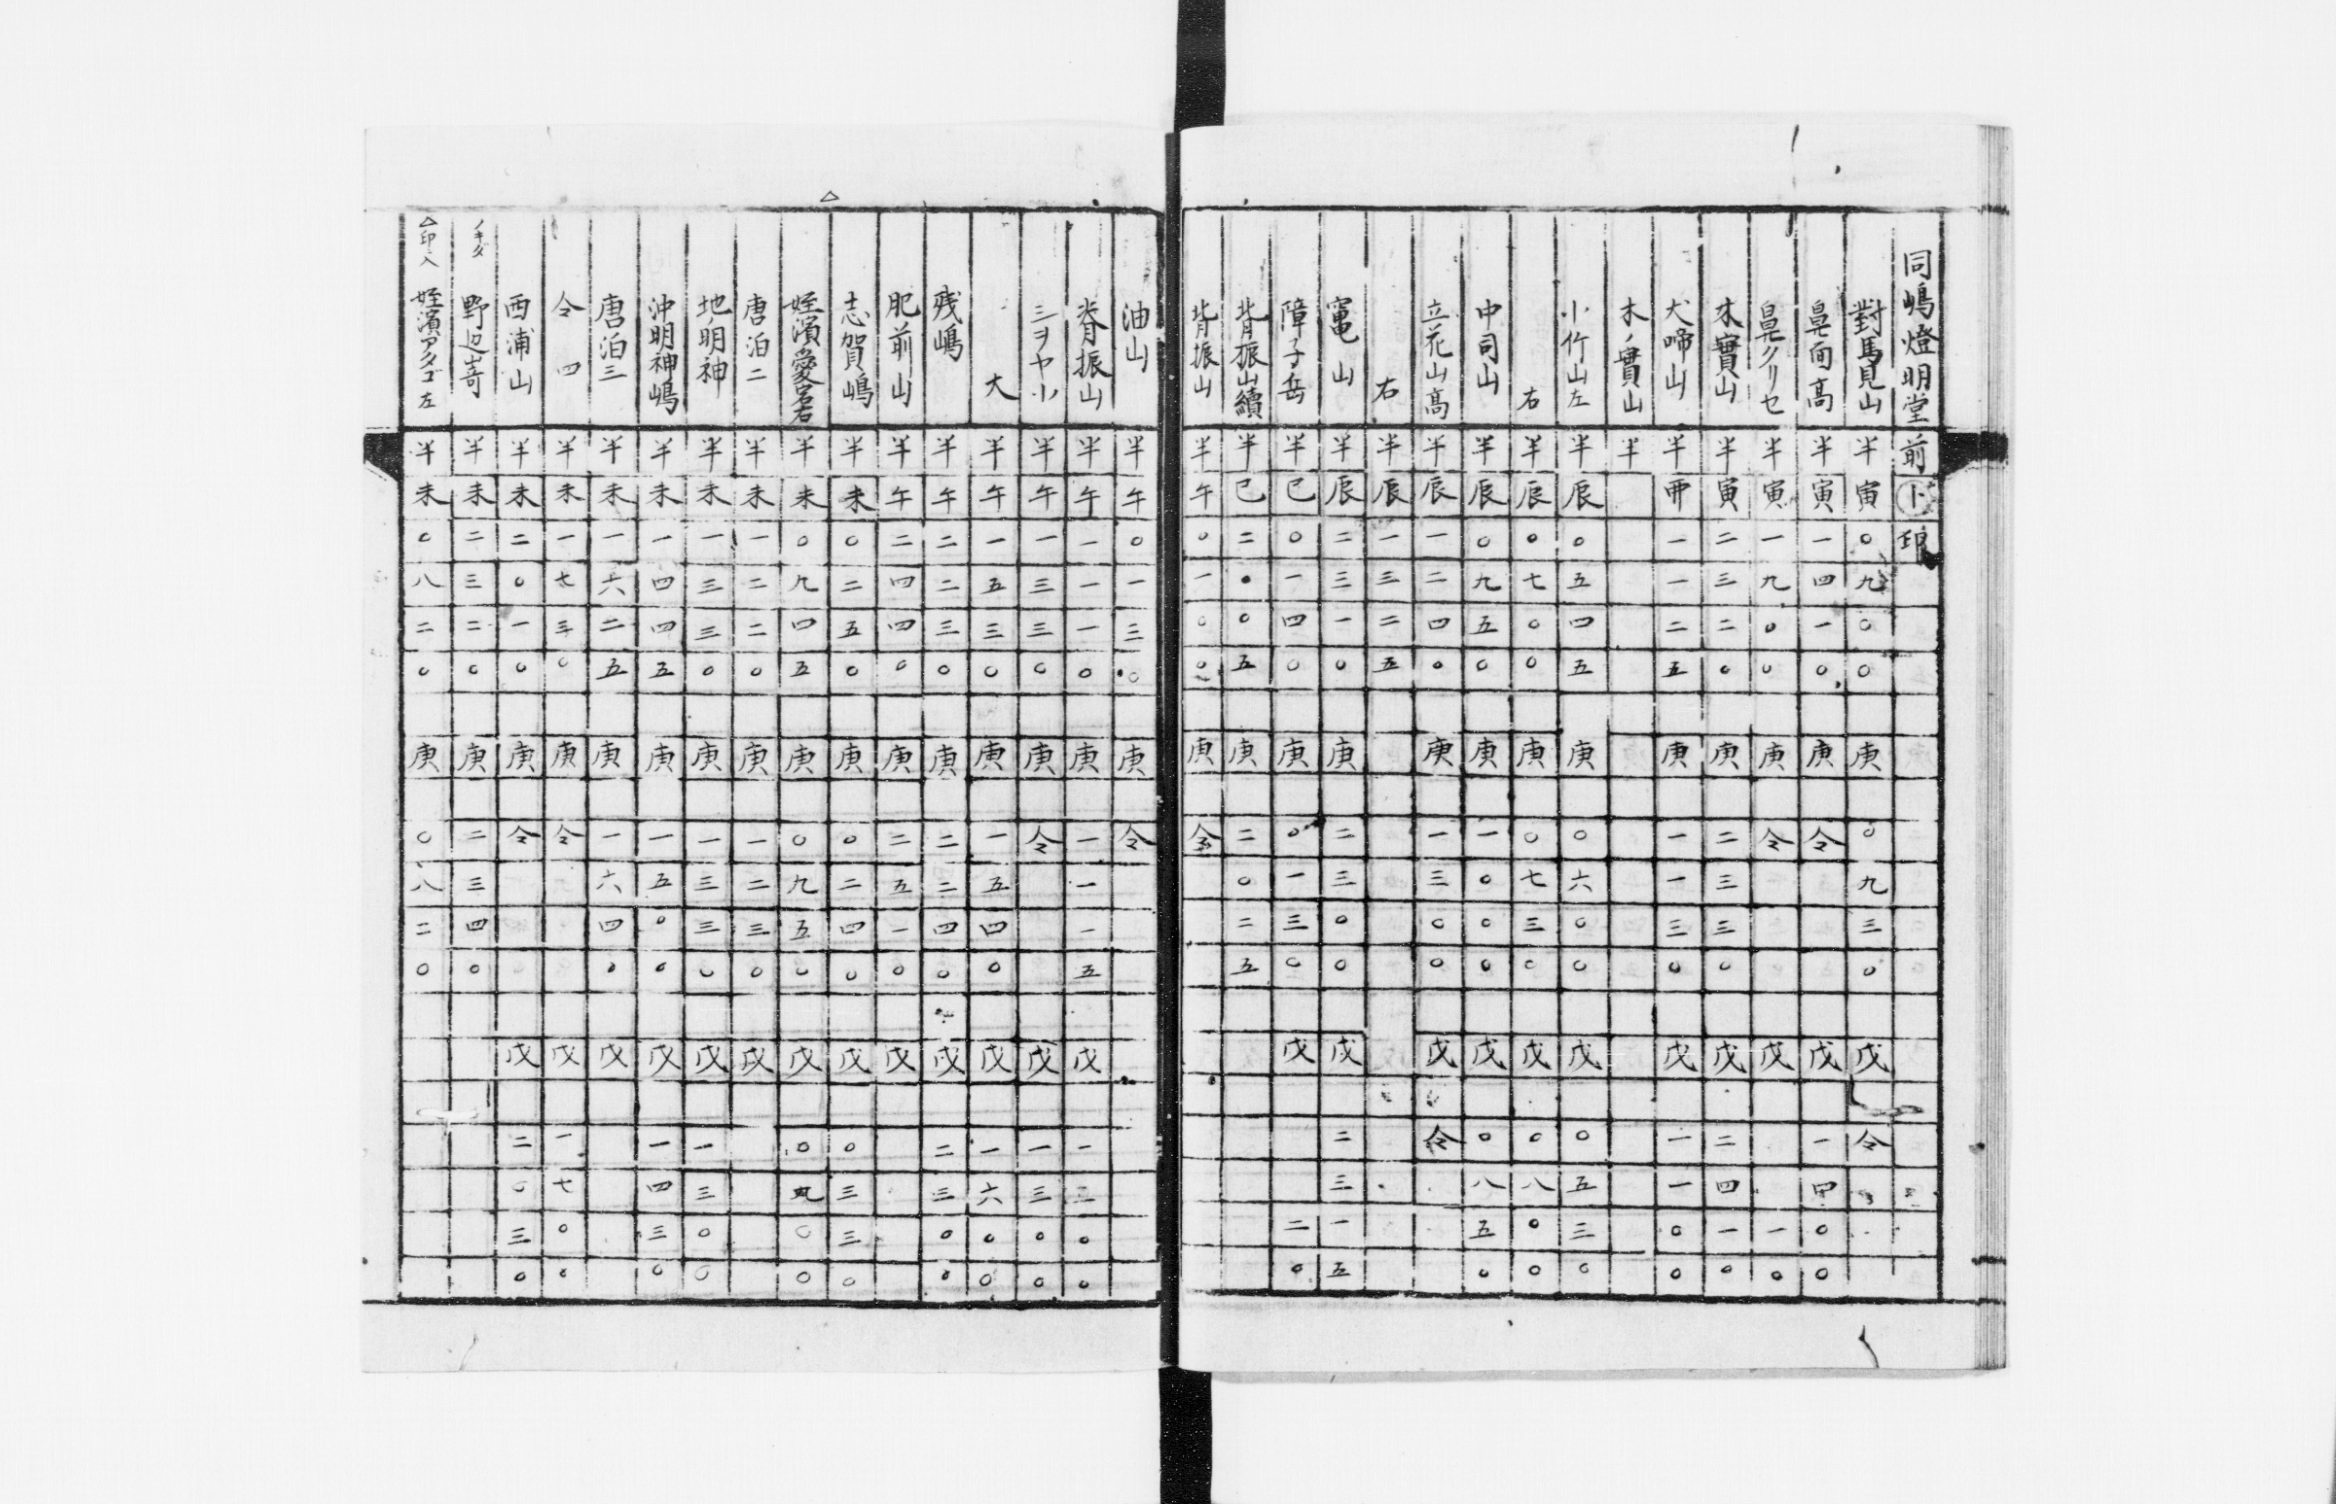 同嶋燈明堂前㋣印
對馬見山 半 寅 〇九〇〇 庚 〇九三〇 戊 令
鼻面高 半 寅 一四一〇 庚 令 戊 一四〇〇
鼻クリセ 半 寅 一九〇〇 庚 令 戊 一〇
木實山 半 寅 二三二〇 庚 二三三〇 戊 二四一〇
犬啼山 半 一一二五 庚 一一三〇 戊 一一〇〇
木ノ實山 半
小竹山左 半 辰 〇五四五 庚 〇六〇〇 戊 〇五三〇
右 半 辰 〇七〇〇 庚 〇七三〇 戊 〇八〇〇
中司山 半 辰 〇九五〇 庚 一〇〇〇 戊 〇八五〇
立花山高 半 辰 一二四〇 庚 一三〇〇 戊 令
右 半 辰 一三二五
竈山 半 辰 二三一〇 庚 二三〇〇 戊 二三一五
障子岳 半 巳 〇一四〇 庚 〇一三〇 戊 二〇
背振山續 半 巳 二〇〇五 庚 二〇二五
背振山 半 午 〇一〇〇 庚 令
油山 半 午 〇一三〇 庚 令
脊振山 半 午 一一一〇 庚 一一一五 戊 一二〇〇
三ヲヤ小 半 午 一三三〇 庚 令 戊 一三〇〇
大 半 午 一五三〇 庚 一五四〇 戊 一六〇〇
残嶋 半 午 二二三〇 庚 二二四〇 戊 二三〇〇
肥前山 半 午 二四四〇 庚 二五一〇 戊
志賀嶋 半 未 〇二五〇 庚 〇二四〇 戊 〇三三〇
△ 姪濱愛宕 半 未 〇九四五 庚 〇九五〇 戊 〇九〇〇
唐泊二 半 未 一二二〇 庚 一二三〇 戊
地ノ明神 半 未 一三三〇 庚 一三三〇 戊 一三〇〇
沖明神嶋 半 未 一四四五 庚 一五〇〇 戊 一四三〇
唐泊三 半 未 一六二五 庚 一六四〇 戊
令四 半 未 一七三〇 庚 令 戊 一七〇〇
西浦山 半 未 二〇一〇 庚 令 戊 二〇三〇
ノキタ 野辺嵜 半 未 二三二〇 庚 二三四〇
△印ハ 姪濱アタゴ左 半 未 〇八二〇 庚 〇八二〇